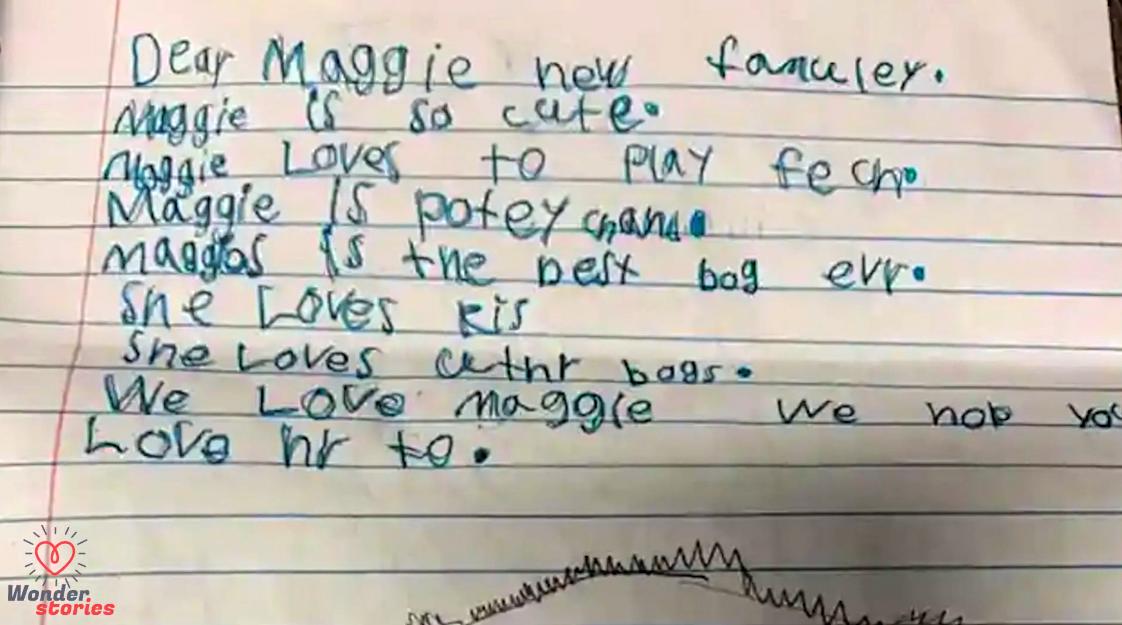 Dear Maggie new famuley.
Maggie is so cute.
Maggie Loves to Play fech.
Maggie is potey chand.
maggos is the best bog evr.
She Loves kis
She Loves uthr bogs.
We Love Maggie We hop you
Love hr to.
Wonder
stories